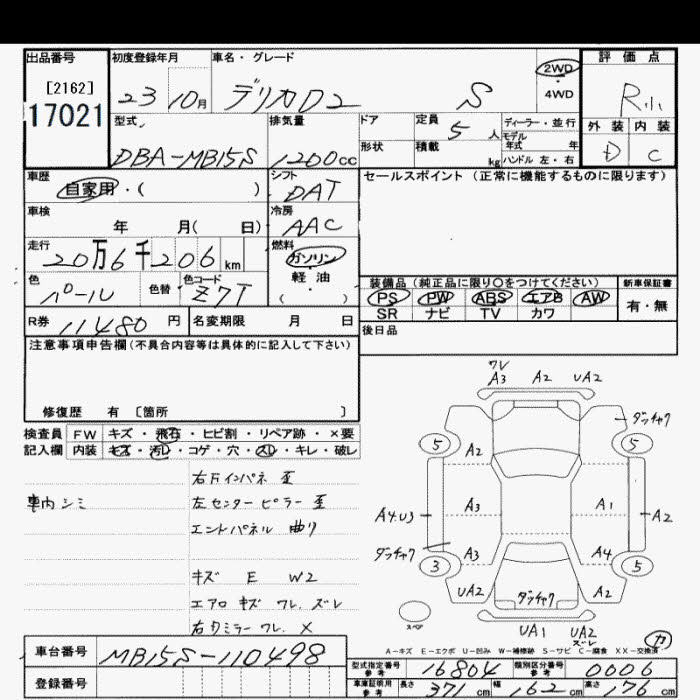 出品番号
[2162]
17021
初度登録年月
23 10月
車名・グレード
デリカD2 S
2WD
4WD
評価点
R小
外装 内装
D C
型式
DBA-MB15S
排気量
1200cc
ドア
形状
定員
5人
積載
kg
ディーラー・並行
モデル
年式 年
ハンドル 左・右
車歴
自家用・( )
シフト
DAT
車検
年 月( 日)
冷房
AAC
走行
20万6千206km
燃料
ガソリン
軽・油
( )
色
パール
色替
色コード
Z7T
R券 11480円
名変期限 月 日
セールスポイント(正常に機能するものに限ります)
装備品(純正品に限り○をつけてください)
新車保証書
PS PW ABS エアB AW
SR ナビ TV カワ
有・無
後日品
注意事項申告欄(不具合内容等は具体的に記入して下さい)
修復歴 有 [箇所 ]
検査員 FW キズ・飛石・ヒビ割・リペア跡・×要
記入欄 内装 キズ・汚レ・コゲ・穴・スレ・キレ・破レ
車内シミ
右Fインパネ 歪
左センターピラー 歪
エンドパネル 曲り
キズ E W2
エアロ キズ ワレ ズレ
右ドミラー ワレ ×
ワレ
A3 A2 UA2
ダッチャク
5 5
A2
A4U3 A3 A1 A2
ダッチャク
A3 A4
3 5
UA2 ダッチャク A2
スペア
UA1 UA2
ズレ
カ
A-キズ E-エクボ U-凹み W-補修跡 S-サビ C-腐食 XX-交換済
車台番号 MB15S-110498
登録番号
型式指定番号
参考
16804
類別区分番号
参考
0006
車庫証明用
参考
長さ 371cm 幅 162cm 高さ 176cm